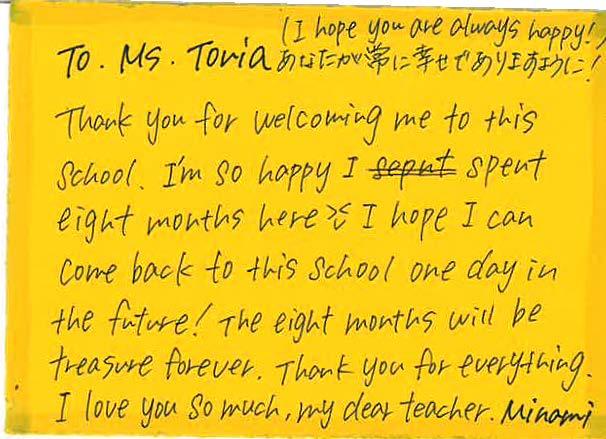 (I hope you are always happy!)
To. Ms. Toria あなたが常に幸せでありますように!
Thank you for welcoming me to this
school. I'm so happy I sepnt spent
eight months here >< I hope I can
come back to this school one day in
the future! The eight months will be
treasure forever. Thank you for everything.
I love you so much, my dear teacher. Minami